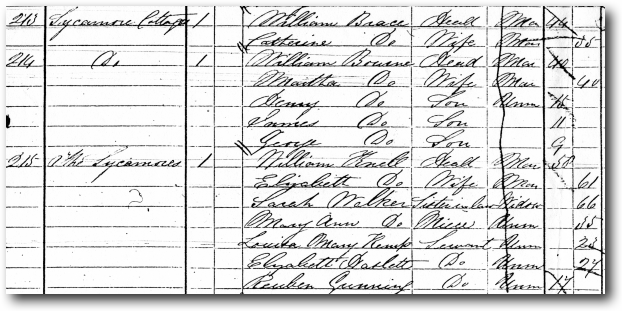 213 Sycamore Cottage 1 William Brace Head Mar 44
Catherine Do Wife Mar 35
214 Do 1 William Bourne Head Mar 40
Martha Do Wife Mar 40
Henry Do Son Unm 15
James Do Son 11
George Do Son 9
215 The Sycamores 1 William Head Mar
Elizabeth Do Wife Mar 61
Sarah Walker Sister in law Widow 66
Mary Ann Do Niece Unm 35
Louisa Mary Kemp Servant Unm 23
Elizabeth Do Unm 27
Reuben Gunning Do Unm 17